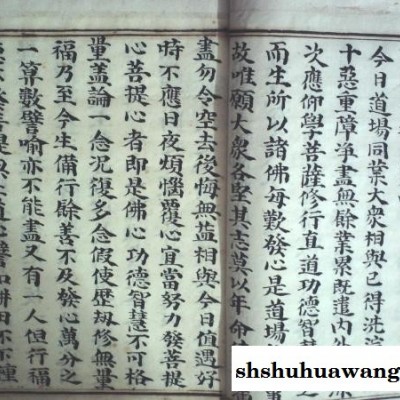 今日道場同業大衆相與已得洗
十惡重障淨盡無餘業累既遣內外
次應仰學菩薩修行直道功德智
而生所以諸佛每歎發心是道場
故唯願大衆各堅其志莫以年命
盡勿令空去後悔無益相與今日值遇好
時不應日夜煩惱覆心宜當努力發菩提
心菩提心者即是佛心功德智慧不可格
量蓋論一念況復多念假使歷劫修無量
福乃至今生備行餘善不及發心萬分之
一算數譬喻亦不能盡又有一人但行福
shshuhuawang